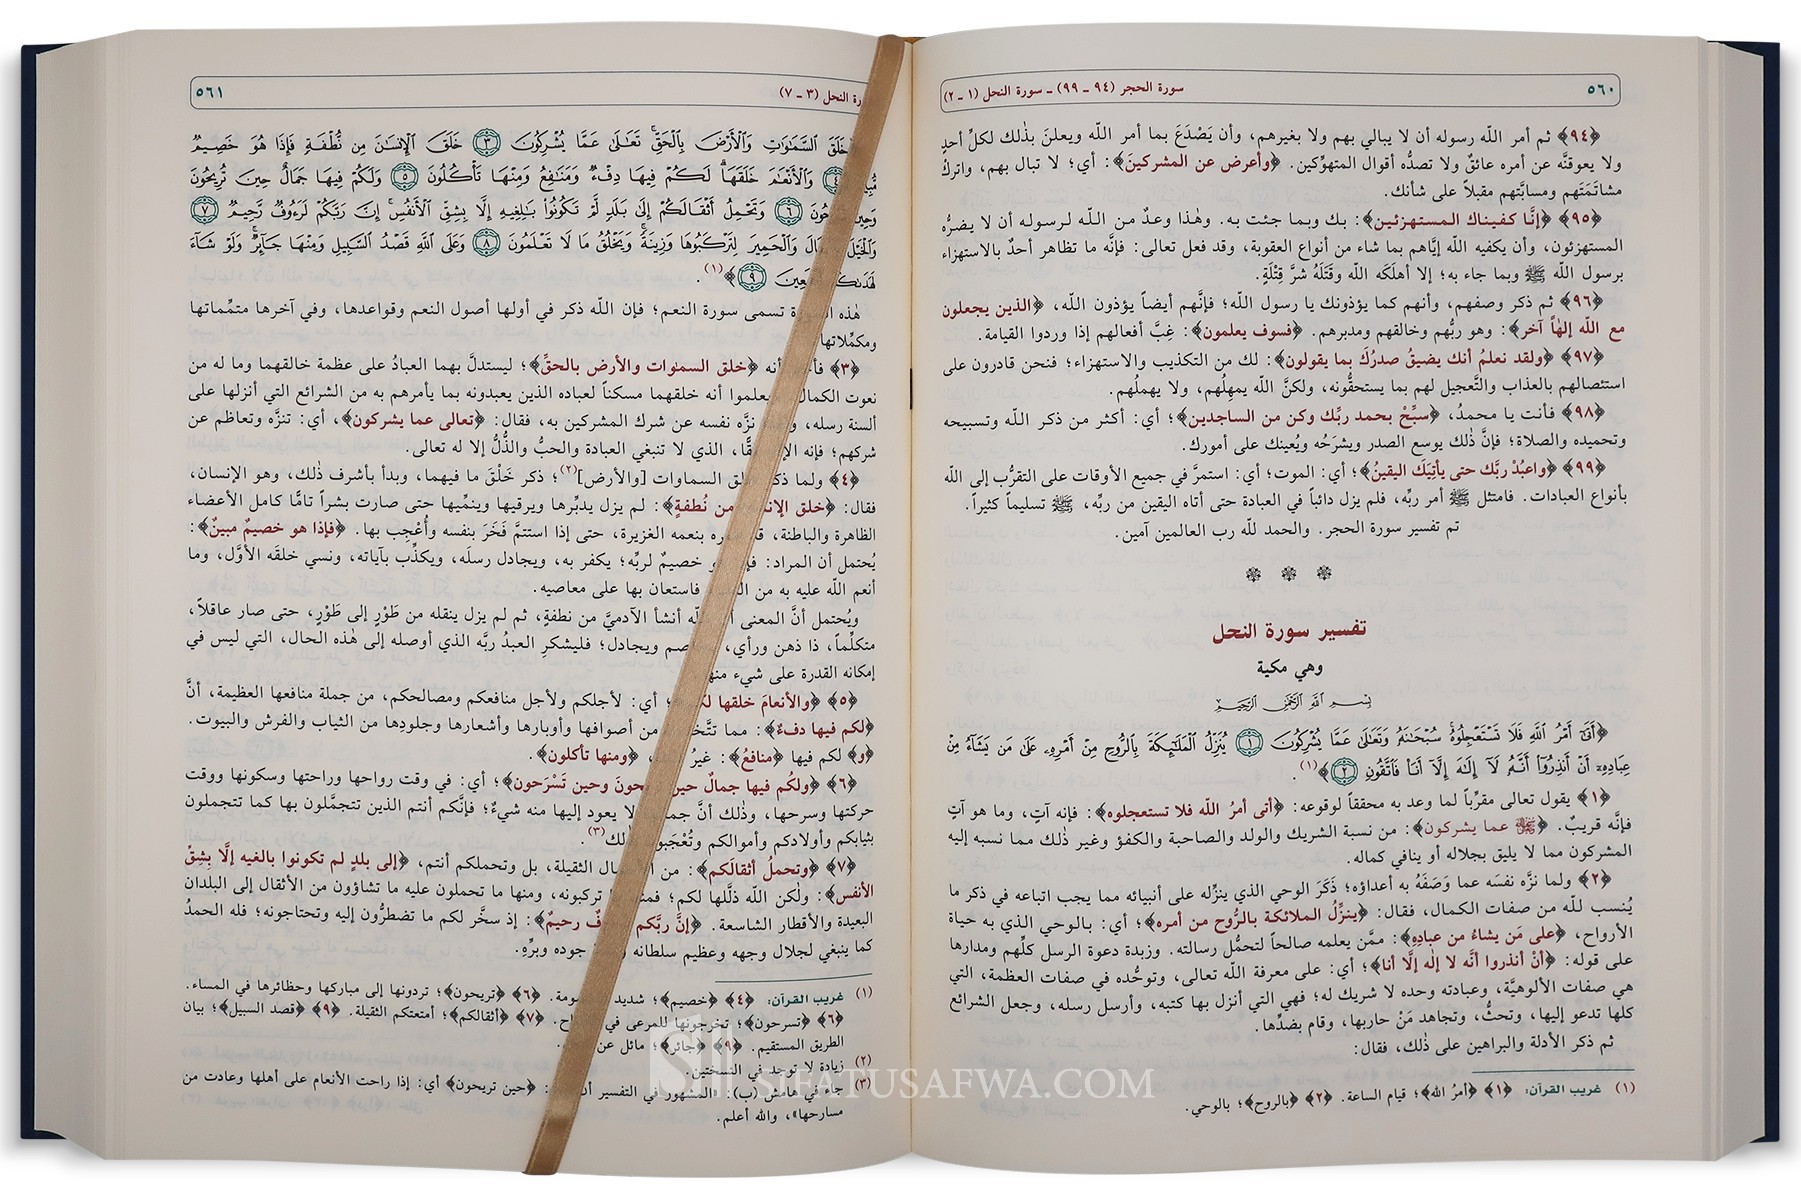 ٥٦٠
سورة الحجر (٩٤ ـ ٩٩) ـ سورة النحل (١ ـ ٢)
﴿٩٤﴾ ثم أمر اللّه رسوله أن لا يبالي بهم ولا بغيرهم، وأن يَصْدَعَ بما أمر اللّه ويعلنَ بذٰلك لكلِّ أحدٍ
ولا يعوقنَّه عن أمره عائقٌ ولا تصدُّه أقوال المتهوِّكين. ﴿وأعرض عن المشركينَ﴾: أي؛ لا تبال بهم، واترك
مشاتَمَتَهم ومسابَّتهم مقبلاً على شأنك.
﴿٩٥﴾ ﴿إنَّا كفيناك المستهزئين﴾: بك وبما جئت به. وهٰذا وعدٌ من اللّه لرسوله أن لا يضرُّه
المستهزئون، وأن يكفيه اللّه إيَّاهم بما شاء من أنواع العقوبة، وقد فعل تعالى: فإنَّه ما تظاهر أحدٌ بالاستهزاء
برسول اللّه ﷺ وبما جاء به؛ إلا أهلَكَه اللّه وقَتَلَهُ شرَّ قِتْلَةٍ.
﴿٩٦﴾ ثم ذكر وصفهم، وأنهم كما يؤذونك يا رسول اللّه؛ فإنَّهم أيضاً يؤذون اللّه، ﴿الذين يجعلون
مع اللّه إلٰهاً آخر﴾: وهو ربُّهم وخالقهم ومدبرهم. ﴿فسوف يعلمون﴾: غِبَّ أفعالهم إذا وردوا القيامة.
﴿٩٧﴾ ﴿ولقد نعلمُ أنك يضيقُ صدرُكَ بما يقولون﴾: لك من التكذيب والاستهزاء؛ فنحن قادرون على
استئصالهم بالعذاب والتَّعجيل لهم بما يستحقُّونه، ولكنَّ اللّه يمهلُهم، ولا يهملُهم.
﴿٩٨﴾ فأنت يا محمدُ، ﴿سبِّحْ بحمد ربِّك وكن من الساجدين﴾؛ أي: أكثر من ذكر اللّه وتسبيحه
وتحميده والصلاة؛ فإنَّ ذٰلك يوسع الصدر ويشرَحُه ويُعينك على أمورك.
﴿٩٩﴾ ﴿واعبُدْ ربَّك حتى يأتِيَك اليقينُ﴾؛ أي: الموت؛ أي: استمرَّ في جميع الأوقات على التقرُّب إلى اللّه
بأنواع العبادات. فامتثل ﷺ أمر ربِّه، فلم يزل دائباً في العبادة حتى أتاه اليقين من ربِّه، ﷺ تسليماً كثيراً.
تم تفسير سورة الحجر. والحمد للّه رب العالمين آمين.
تفسير سورة النحل
وهي مكية
بِسْمِ اللَّهِ الرَّحْمَٰنِ الرَّحِيمِ
﴿أَتَىٰٓ أَمْرُ ٱللَّهِ فَلَا تَسْتَعْجِلُوهُۚ سُبْحَٰنَهُۥ وَتَعَٰلَىٰ عَمَّا يُشْرِكُونَ ١ يُنَزِّلُ ٱلْمَلَٰٓئِكَةَ بِٱلرُّوحِ مِنْ أَمْرِهِۦ عَلَىٰ مَن يَشَآءُ مِنْ
عِبَادِهِۦٓ أَنْ أَنذِرُوٓا۟ أَنَّهُۥ لَآ إِلَٰهَ إِلَّآ أَنَا۠ فَٱتَّقُونِ ٢﴾(١).
﴿١﴾ يقول تعالى مقرِّباً لما وعد به محققاً لوقوعه: ﴿أتى أمرُ اللّه فلا تستعجلوه﴾: فإنه آتٍ، وما هو آتٍ
فإنَّه قريبٌ. عما يشركون﴾: من نسبة الشريك والولد والصاحبة والكفؤ وغير ذٰلك مما نسبه إليه
المشركون مما لا يليق بجلاله أو ينافي كماله.
﴿٢﴾ ولما نزَّه نفسَه عما وَصَفَهُ به أعداؤه؛ ذَكَرَ الوحي الذي ينزِّله على أنبيائه مما يجب اتباعه في ذكر ما
يُنسب للّه من صفات الكمال، فقال: ﴿ينزِّلُ الملائكة بالرُّوح من أمره﴾؛ أي: بالوحي الذي به حياة
الأرواح، ﴿على مَن يشاءُ من عبادِهِ﴾: ممَّن يعلمه صالحاً لتحمُّل رسالته. وزبدة دعوة الرسل كلِّهم ومدارها
على قوله: ﴿أنْ أنذروا أنَّه لا إلٰه إلَّا أنا﴾؛ أي: على معرفة اللّه تعالى، وتوحُّده في صفات العظمة، التي
هي صفات الألوهيَّة، وعبادته وحده لا شريك له؛ فهي التي أنزل بها كتبه، وأرسل رسله، وجعل الشرائع
كلها تدعو إليها، وتحثُّ، وتجاهد مَنْ حاربها، وقام بضدِّها.
ثم ذكر الأدلة والبراهين على ذٰلك، فقال:
(١) غريب القرآن: ﴿١﴾ ﴿أمرُ اللّه﴾؛ قيام الساعة. ﴿٢﴾ ﴿بالروح﴾؛ بالوحي.
رة النحل (٣ ـ ٧)
٥٦١
خَلَقَ ٱلسَّمَٰوَٰتِ وَٱلْأَرْضَ بِٱلْحَقِّۚ تَعَٰلَىٰ عَمَّا يُشْرِكُونَ ٣ خَلَقَ ٱلْإِنسَٰنَ مِن نُّطْفَةٍ فَإِذَا هُوَ خَصِيمٌ
٤ وَٱلْأَنْعَٰمَ خَلَقَهَاۗ لَكُمْ فِيهَا دِفْءٌ وَمَنَٰفِعُ وَمِنْهَا تَأْكُلُونَ ٥ وَلَكُمْ فِيهَا جَمَالٌ حِينَ تُرِيحُونَ
٦ وَتَحْمِلُ أَثْقَالَكُمْ إِلَىٰ بَلَدٍ لَّمْ تَكُونُوا۟ بَٰلِغِيهِ إِلَّا بِشِقِّ ٱلْأَنفُسِۚ إِنَّ رَبَّكُمْ لَرَءُوفٌ رَّحِيمٌ ٧
وَٱلْخَيْلَ وَٱلْحَمِيرَ لِتَرْكَبُوهَا وَزِينَةًۚ وَيَخْلُقُ مَا لَا تَعْلَمُونَ ٨ وَعَلَى ٱللَّهِ قَصْدُ ٱلسَّبِيلِ وَمِنْهَا جَآئِرٌۚ وَلَوْ شَآءَ
٩﴾(١).
هٰذه تسمى سورة النعم؛ فإن اللّه ذكر في أولها أصول النعم وقواعدها، وفي آخرها متمِّماتها
ومكمِّلاتها
﴿٣﴾ أنه ﴿خلق السمٰوات والأرض بالحقِّ﴾؛ ليستدلَّ بهما العبادُ على عظمة خالقهما وما له من
نعوت الكمال يعلموا أنه خلقهما مسكناً لعباده الذين يعبدونه بما يأمرهم به من الشرائع التي أنزلها على
ألسنة رسله، نزَّه نفسه عن شرك المشركين به، فقال: ﴿تعالى عما يشركون﴾، أي: تنزَّه وتعاظم عن
شركهم؛ فإنه قًّا، الذي لا تنبغي العبادة والحبُّ والذُّلُّ إلا له تعالى.
﴿٤﴾ ولما ذكر لق السماوات [والأرض](٢)؛ ذكر خَلْقَ ما فيهما، وبدأ بأشرف ذٰلك، وهو الإنسان،
فقال: ﴿خلق من نُطفةٍ﴾: لم يزل يدبِّرها ويرقيها وينمِّيها حتى صارت بشراً تامًّا كامل الأعضاء
الظاهرة والباطنة، ره بنعمه الغزيرة، حتى إذا استتمَّ فَخَرَ بنفسه وأُعْجِب بها. ﴿فإذا هو خصيمٌ مبينٌ﴾:
يُحتمل أن المراد: خصيمٌ لربِّه؛ يكفر به، ويجادل رسلَه، ويكذِّب بآياته، ونسي خلقَه الأوَّل، وما
أنعم اللّه عليه به من فاستعان بها على معاصيه.
ويُحتمل أنَّ المعنى أنشأ الآدميَّ من نطفةٍ، ثم لم يزل ينقله من طَوْر إلى طَوْر، حتى صار عاقلاً،
متكلِّماً، ذا ذهن ورأي، صم ويجادل؛ فليشكرِ العبدُ ربَّه الذي أوصله إلى هٰذه الحال، التي ليس في
إمكانه القدرة على شيء
﴿٥﴾ ﴿والأنعامَ خلقها ﴾؛ أي: لأجلكم ولأجل منافعكم ومصالحكم، من جملة منافعها العظيمة، أنَّ
﴿لكم فيها دفءٌ﴾: مما من أصوافها وأوبارها وأشعارها وجلودِها من الثياب والفرش والبيوت.
﴿و﴾ لكم فيها ﴿منافعُ﴾: غيرُ ﴿ومنها تأكلون﴾.
﴿٦﴾ ﴿ولكُم فيها جمالٌ حين يحونَ وحين تَسْرَحون﴾؛ أي: في وقت رواحها وراحتها وسكونها ووقت
حركتها وسرحها، وذٰلك أنَّ لا يعود إليها منه شيءٌ؛ فإنَّكم أنتم الذين تتجمَّلون بها كما تتجملون
بثيابكم وأولادكم وأموالكم لك(٣).
﴿٧﴾ ﴿وتحملُ أثقالَكم﴾: من ال الثقيلة، بل وتحملكم أنتم، ﴿إلى بلدٍ لم تكونوا بالغيه إلَّا بِشِقِّ
الأنفس﴾: ولٰكن اللّه ذلَّلها لكم؛ تركبونه، ومنها ما تحملون عليه ما تشاؤون من الأثقال إلى البلدان
البعيدة والأقطار الشاسعة. ﴿إنَّ ربَّكم فٌ رحيمٌ﴾: إذ سخَّر لكم ما تضطرُّون إليه وتحتاجونه؛ فله الحمدُ
كما ينبغي لجلال وجهه وعظيم سلطانه جوده وبرِّه.
(١) غريب القرآن: ﴿٤﴾ ﴿خصيم﴾؛ شديد ومة. ﴿٦﴾ ﴿تريحون﴾؛ تردونها إلى مباركها وحظائرها في المساء.
﴿٦﴾ ﴿تسرحون﴾؛ تخرجونها للمرعى في اح. ﴿٧﴾ ﴿أثقالكم﴾؛ أمتعتكم الثقيلة. ﴿٩﴾ ﴿قصد السبيل﴾؛ بيان
الطريق المستقيم. ﴿٩﴾ ﴿جائر﴾؛ مائل عن
(٢) زيادة لا توجد في النسختين.
(٣) جاء في هامش (ب): «المشهور في التفسير ﴿حين تريحون﴾ أي: إذا راحت الأنعام على أهلها وعادت من
مسارحها»، واللّه أعلم.
SIFATUSAFWA.COM